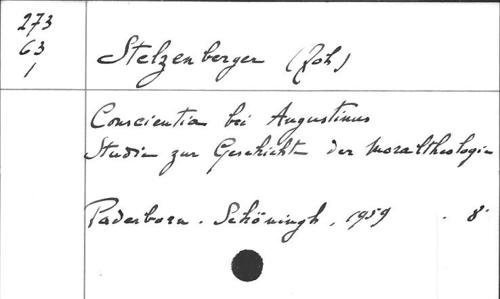 273
63
1
Stelzenberger (Joh)
Conscientia bei Augustinus
Studie zur Geschichte der Moraltheologie
Paderborn. Schöningh, 1959 . 8°